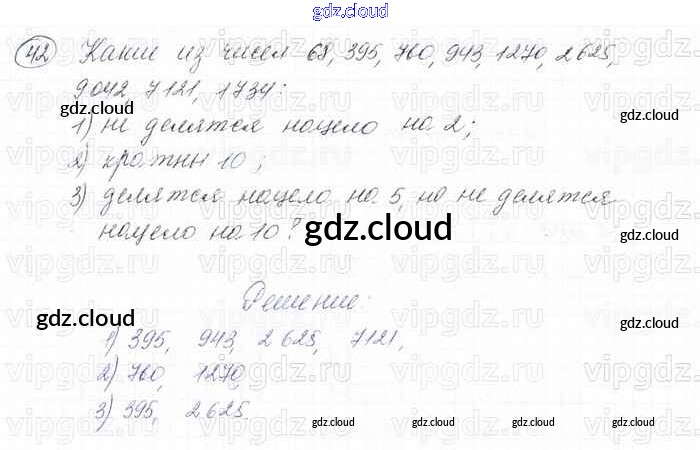 gdz.cloud
42 Какие из чисел 68, 395, 760, 943, 1270, 2625,
9042, 7121, 1734:
gdz.cloud
gdz.cloud
1) не делятся нацело на 2;
2) кратны 10;
3) делятся нацело на 5, но не делятся
нацело на 10?
gdz.cloud
Решение:
gdz.cloud
gdz.cloud
1) 395, 943, 2625, 7121,
2) 760, 1270,
3) 395, 2625
gdz.cloud
gdz.cloud
gdz.cloud
gdz.cloud